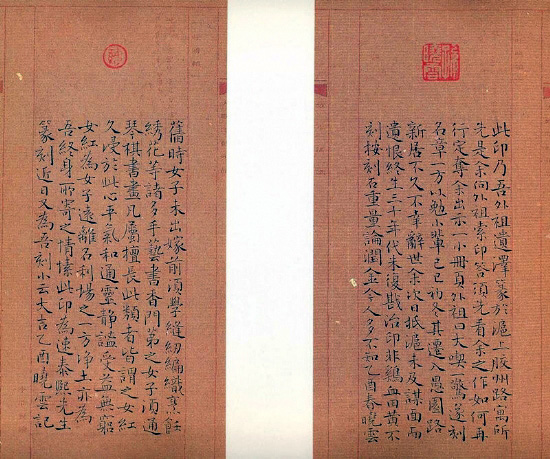 此印乃吾外祖遺澤篆於滬上胶州路寓所
先是余向外祖索印答須先看余之作如何再
行定奪余出示一小冊頁外祖曰大喫一驚遂刻
名章一方以勉小輩己巳初冬其遷入愚園路
新居不久不幸辭世余次日抵滬未及謀面而
遺恨終生三十年代末復戡治印非鷄血田黄不
刻按刻石重量論潤金今人多不知乙酉春曉雲
舊時女子未出嫁前須學縫紉編織烹飪
綉花等諸多手藝書香門第之女子須通
琴棋書畫凡屬擅長此類者皆謂之女紅
久浸於此心平氣和通靈静謐受益無窮
女紅為女子遠離名利場之一方净土亦為
吾終身所寄之情愫此印為速泰熙先生
篆刻近日又為吾刻小云大吉乙酉曉雲記